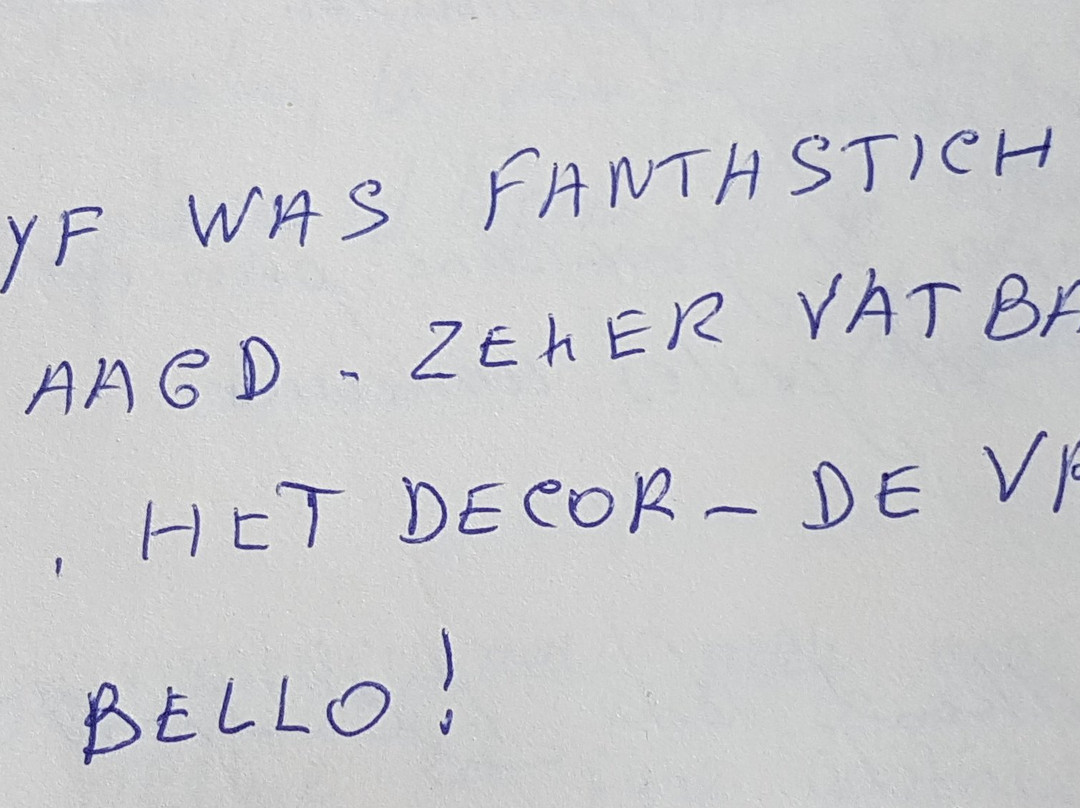 YF WAS FANTASTICH
AAGD - ZEKER VATBA
. HET DECOR - DE VR
BELLO!